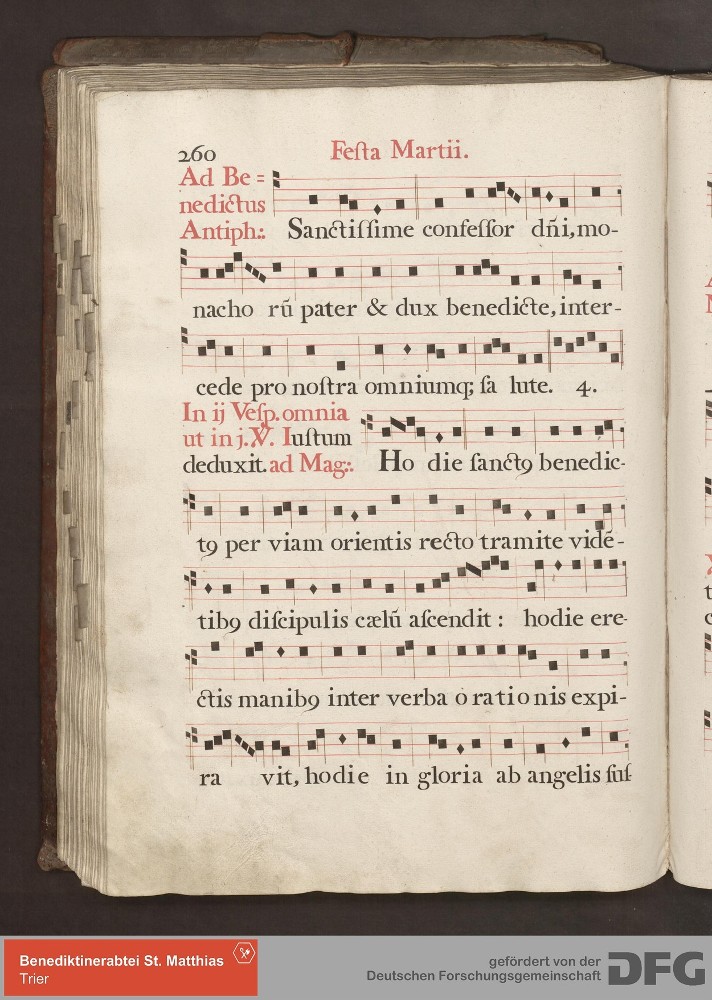 260 Feſta Martii.
Ad Be=
nedictus
Antiph:. Sanctiſſime confeſſor dn̄i, mo-
nacho rū pater & dux benedicte, inter-
cede pro noſtra omniumq; ſa lute. 4.
In ij Veſp. omnia
ut in j. ℣. Iuſtum
deduxit. ad Mag:. Ho die ſanct9 benedic-
t9 per viam orientis recto tramite vidē-
tib9 diſcipulis cælū aſcendit : hodie ere-
ctis manib9 inter verba o ra ti o nis expi-
ra vit, hodie in gloria ab angelis ſuſ-
Benediktinerabtei St. Matthias
Trier
gefördert von der
Deutschen Forschungsgemeinschaft
DFG